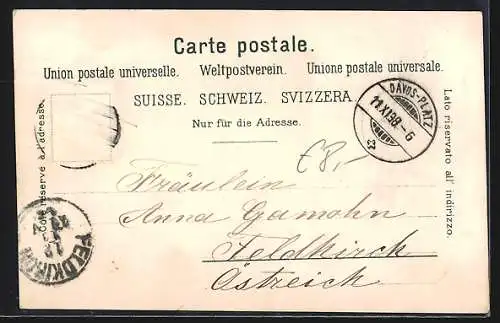 Carte postale.
Union postale universelle. Weltpostverein. Unione postale universale.
SUISSE. SCHWEIZ. SVIZZERA
Nur für die Adresse.
Côté réservé à l'adresse.
Lato riservato all' indirizzo.
DAVOS-PLATZ
11.XI.98.-6
€8,-
Fräulein
Anna Gamohn
Feldkirch
Östreich
FELDKIRCH